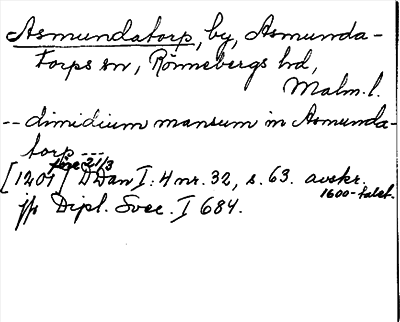 Asmundatorp, by, Asmunda-
torps sn, Rönnebergs hd,
Malm.l.
-- dimidium mansum in Asmunda-
torp ---
före 21/3
[1201] DDan I:4 nr. 32, s. 63. avskr.
1600-talet.
jfr Dipl. Svec. I 684.